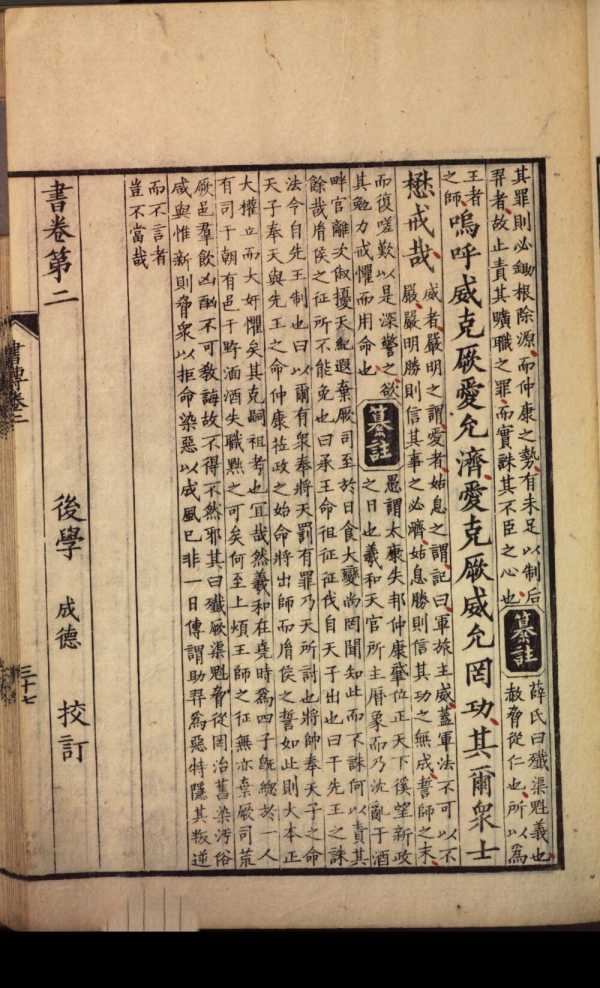 其罪則必鋤根除源而仲康之勢有未足以制后
羿者故止責其曠職之罪而實誅其不臣之心也
纂註
薛氏曰殲渠魁義也
赦脅從仁也所以為
王者
之師
嗚呼威克厥愛允濟愛克厥威允罔功其爾衆士
懋戒哉
威者嚴明之謂愛者姑息之謂記曰軍旅主威蓋軍法不可以不
嚴嚴明勝則信其事之必濟姑息勝則信其功之無成誓師之末
而復嗟歎以是深警之欲
其勉力戒懼而用命也
纂註
愚謂太康失邦仲康肇位正天下徯望新政
之日也羲和天官所主厤象而乃沈亂于酒
畔官離次俶擾天紀遐棄厥司至於日食大變尚罔聞知此而不誅何以責其
餘哉胤侯之征所不能免也曰承王命徂征征伐自天子出也曰干先王之誅
法令自先王制也曰以爾有衆奉將天罰有罪乃天所討也將帥奉天子之命
天子奉天與先王之命仲康莅政之始命將出師而胤侯之誓如此則大本正
大權立而大奸懼矣其克嗣祖考也宜哉然羲和在堯時為四子旣總於一人
有司于朝有邑于野湎酒失職黜之可矣何至上煩王師之征無亦棄厥司荒
厥邑羣飲凶酗不可教誨故不得不然邪其曰殲厥渠魁脅從罔治舊染汚俗
咸與惟新則脅衆以拒命染惡以成風已非一日傳謂助羿為惡特隱其叛逆
而不言者
豈不當哉
書卷第二
後學 成德 挍訂
書傳卷二
三十七